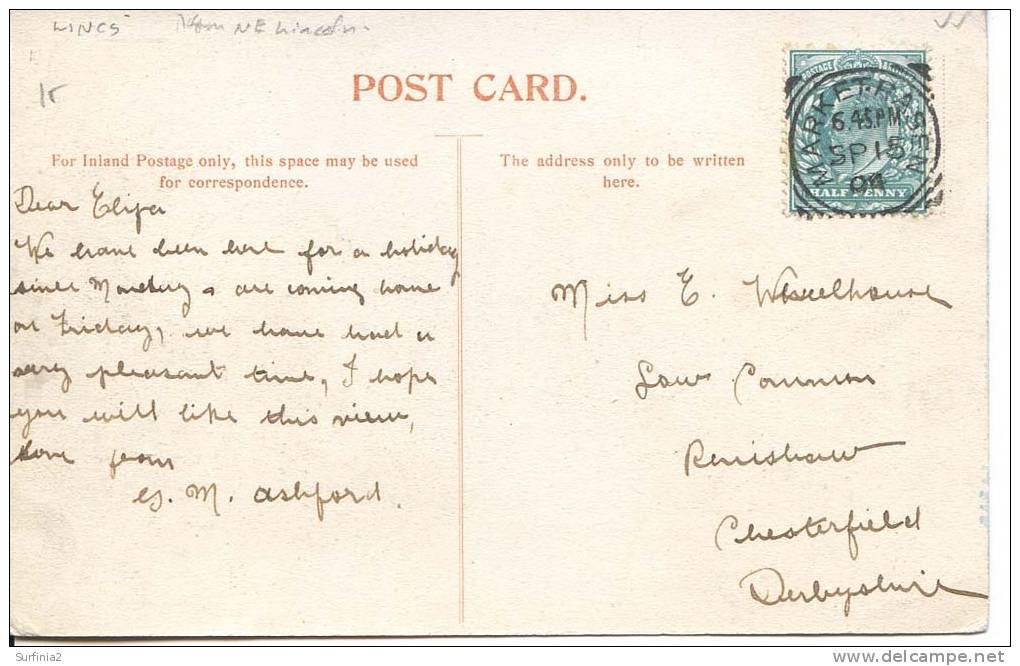 LINCS NE Lincoln
15
POST CARD.
For Inland Postage only, this space may be used
for correspondence.
The address only to be written
here.
POSTAGE
MARKET-RASEN
6.45PM
SP 15
04
HALF PENNY
Dear Eliza
We have been here for a holiday
since Monday & are coming home
on Friday, we have had a
very pleasant time, I hope
you will like this view,
love from
M. Ashford.
Miss E. Wheelhouse
Low Common
Renishaw
Chesterfield
Derbyshire
Surfinia2